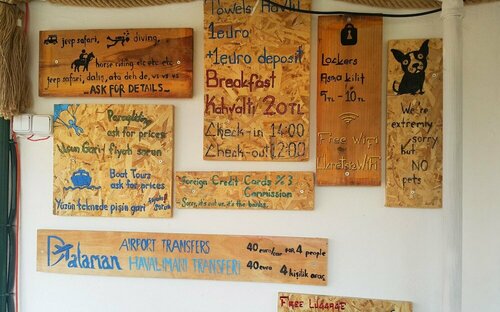 jeep safari, diving,
horse riding etc etc etc
jeep safari, dalış, ata deh de, vs vs vs
ASK FOR DETAILS
Paragliding
ask for prices
fiyatı sorun
Boat Tours
ask for prices
Yüzün teknede pişin gari
Towels Havlu
1euro
+1euro deposit
Breakfast
Kahvaltı 20TL
Check-in 14:00
Check-out 12:00
Foreign Credit Cards %3
Commission
Sorry, its not us, it's the banks.
Lockers
Asma kilit
5TL - 10TL
Free WiFi
Ücretsiz WiFi
We're
extremly
sorry
but
NO
pets
Dalaman
AIRPORT TRANSFERS 40 euro/ for 4 people
HAVALİMANI TRANSFERİ 40 euro 4 kişilik araç
FREE LUGGAGE